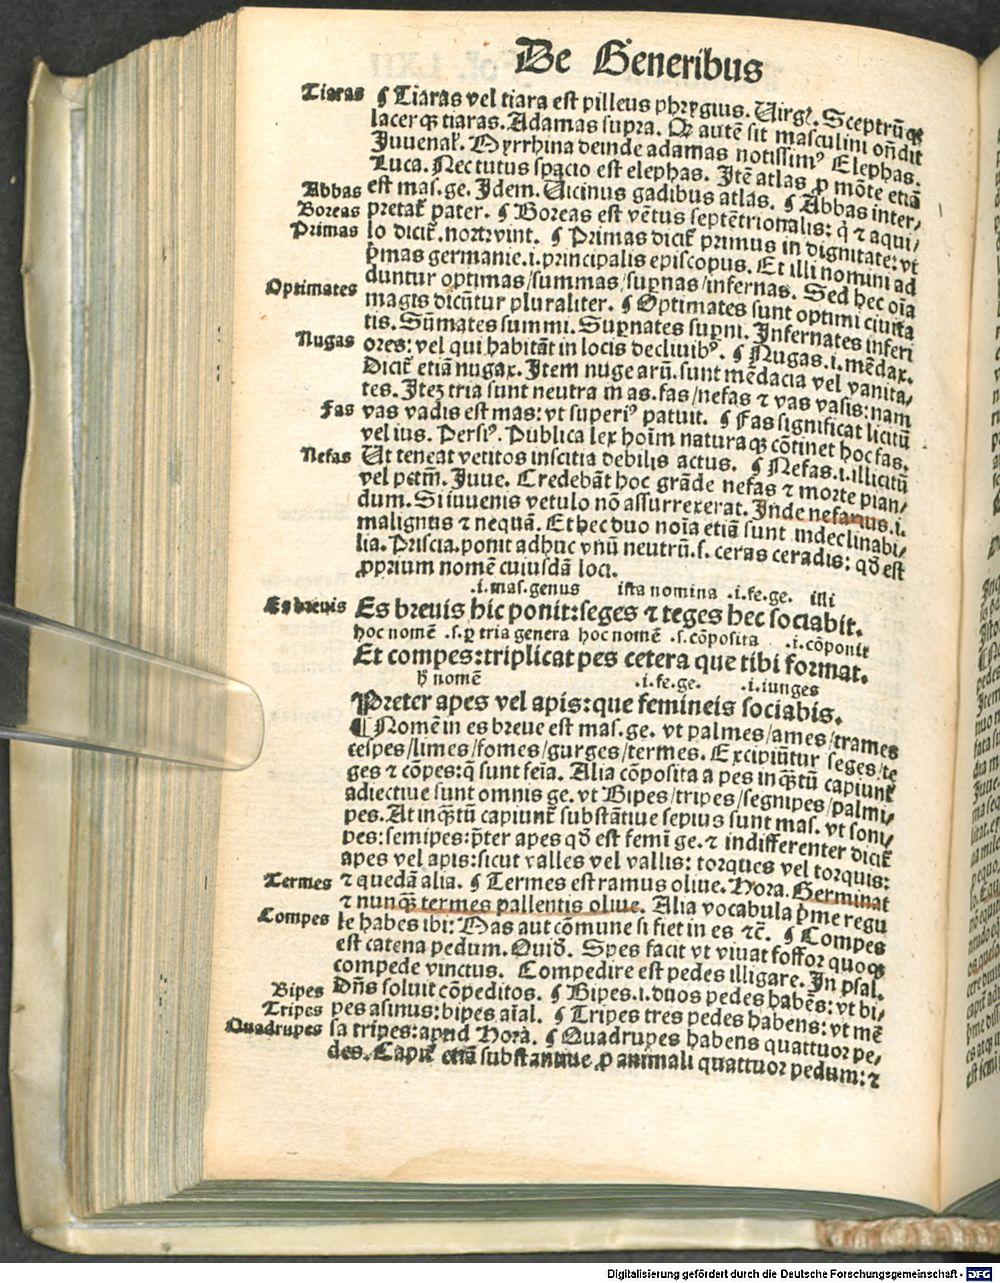 De Generibus
Tiaras ¶ Tiaras vel tiara est pilleus phrygius. Uirgꝭ. Sceptrūqꝫ
lacerqꝫ tiaras. Adamas supra. Qꝛ autē sit masculini on̄dit
Juuenaꝉ. Myrrhina deinde adamas notissimꝰ Elephas.
Luca. Nec tutus spacio est elephas. Jtē atlas ꝑ mōte etiā
Abbas est mas.ge. Jdem. Uicinus gadibus atlas. ¶ Abbas inter/
Boreas pretat᷑ pater. ¶ Boreas est vētus septētrionalis: q̇ ⁊ aqui/
Primas lo dicit᷑. nortvvint. ¶ Primas dicit᷑ primus in dignitate: vt
p̄mas germanie.i.principalis episcopus. Et illi nomini ad
duntur optimas/summas/suꝑnas/infernas. Sed hec oīa
Optimates magis dicūtur pluraliter. ¶ Optimates sunt optimi ciuita
tis. Sūmates summi. Suꝑnates suꝑni. Jnfernates inferi
Nugas ores: vel qui habitāt in locis decliuibꝰ. ¶ Nugas.i.mēdax.
Dicit᷑ etiā nugax. Jtem nuge arū. sunt mēdacia vel vanita/
tes. Jteꝫ tria sunt neutra in as. fas/nefas ⁊ vas vasis: nam
Fas vas vadis est mas: vt superiꝰ patuit. ¶ Fas significat licitū
vel ius. Persiꝰ. Publica lex hoīm naturaqꝫ cōtinet hoc fas.
Nefas Ut teneat vetitos inscitia debilis actus. ¶ Nefas.i.illicitū
vel pctm̄. Juue. Credebāt hoc grāde nefas ⁊ morte pian/
dum. Si iuuenis vetulo nō assurrexerat. Jnde nefarius.i.
malignus ⁊ nequā. Et hec duo noīa etiā sunt indeclinabi/
lia. Priscia. ponit adhuc vnū neutrū.s. ceras ceradis: qď est
ꝓprium nomē cuiusdā loci.
.i.mas.genus ista nomina .i.fe.ge. illi
Es breuis Es breuis hic ponit: seges ⁊ teges hec sociabit.
hoc nomē .s.ꝑ tria genera hoc nomē .s.cōposita .i.cōponit
Et compes: triplicat pes cetera que tibi format.
h̄ nomē .i.fe.ge. .i.iunges
Preter apes vel apis: que femineis sociabis.
¶ Nomē in es breue est mas.ge. vt palmes/ames/trames
cespes/limes/fomes/gurges/termes. Excipiūtur seges/te
ges ⁊ cōpes: q̄ sunt feīa. Alia cōposita a pes inqꝫtū capiunt᷑
adiectiue sunt omnis ge. vt Bipes/tripes/segnipes/palmi
pes. At inqꝫtū capiunt᷑ substātiue sepius sunt mas. vt soni/
pes: semipes: p̄ter apes qď est femi ge. ⁊ indifferenter dicit᷑
apes vel apis: sicut valles vel vallis: torques vel torquis:
Termes ⁊ quedā alia. ¶ Termes est ramus oliue. Hora. Germinat
⁊ nunqꝫ termes pallentis oliue. Alia vocabula p̄me regu
Compes le habes ibi: Mas aut cōmune si fiet in es ⁊c̄. ¶ Compes
est catena pedum. Ouiď. Spes facit vt viuat fossor quoqꝫ
compede vinctus. Compedire est pedes illigare. Jn psal.
Bipes Dn̄s soluit cōpeditos. ¶ Bipes.i.duos pedes habēs: vt bi/
Tripes pes asinus: bipes aīal. ¶ Tripes tres pedes habens: vt mē
Quadrupes sa tripes: apud Horā. ¶ Quadrupes habens quattuor pe/
des. Capit᷑ etiā substantiue ꝓ animali quattuor pedum: ⁊
Digitalisierung gefördert durch die Deutsche Forschungsgemeinschaft - DFG